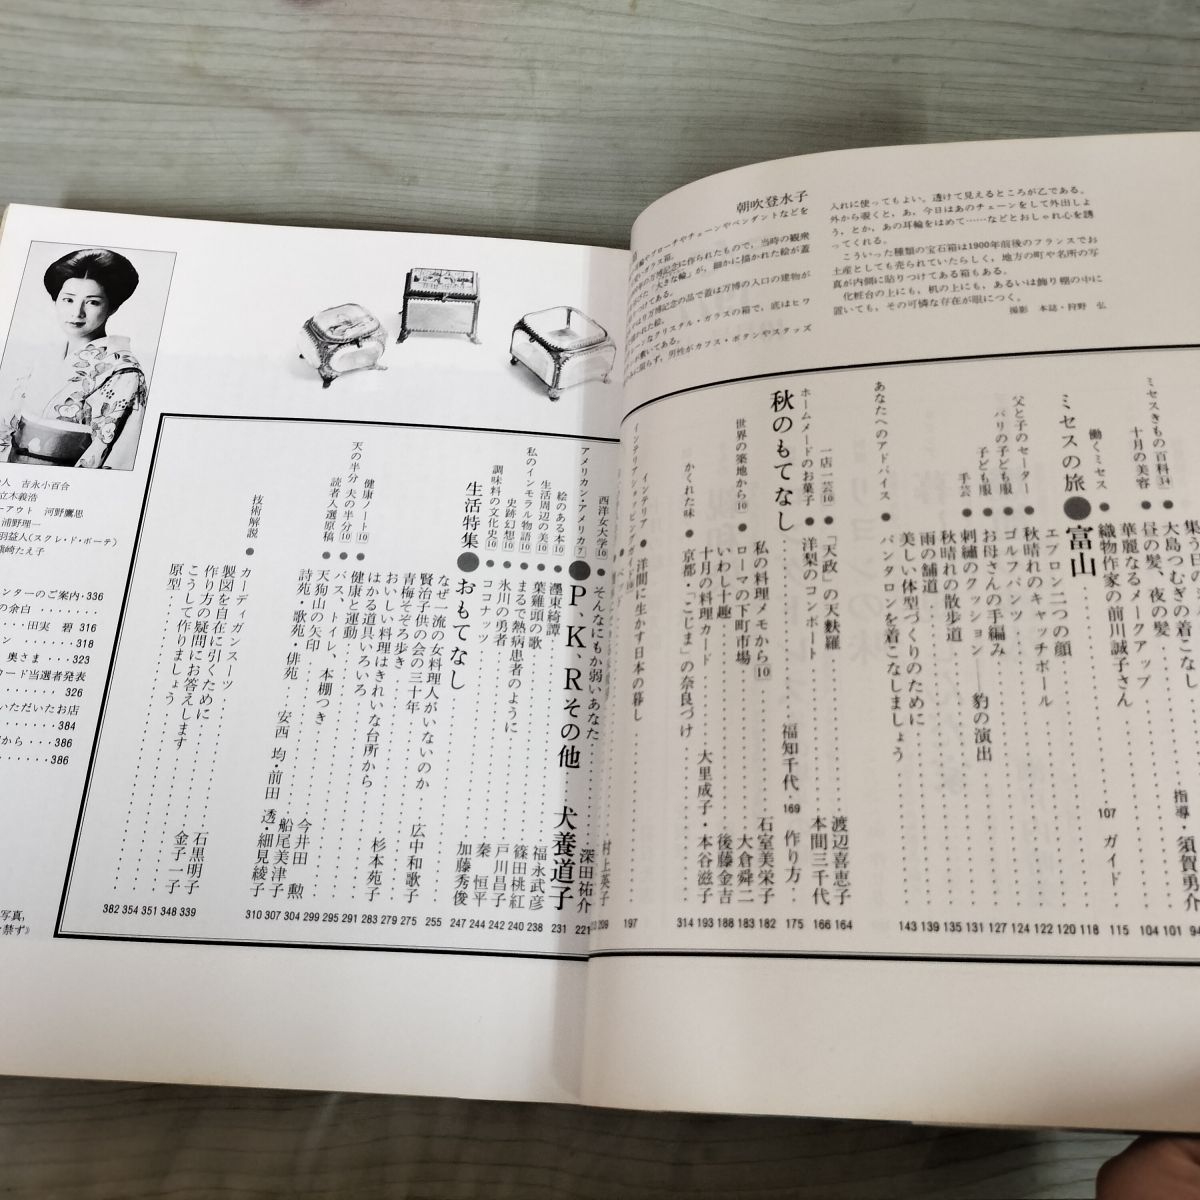 朝吹登水子
入れに使ってもよい。透けて見えるところが乙である。
外から覗くと，あ，今日はあのチェーンをして外出しょ
う，とか，あの耳輪をはめて……などとおしゃれ心を誘
ってくれる。
こういった種類の宝石箱は1900年前後のフランスでお
土産としても売られていたらしく，地方の町や名所の写
真が内側に貼りつけてある箱もある。
化粧台の上にも，机の上にも，あるいは飾り棚の中に
置いても，その可憐な存在が眼につく。
撮影　本誌・狩野　弘
ミセスきもの百科34
大島つむぎの着こなし
指導・須賀勇介
101
十月の美容●昼の髪、夜の髪
104
華麗なるメークアップ
115
働くミセス●織物作家の前川誠子さん
107
ガイド
118
ミセスの旅●富山
エプロン二つの顔
120
父と子のセーター●秋晴れのキャッチボール
122
ゴルフパンツ
124
パリの子ども服●お母さんの手編み
127
手芸●刺繍のクッション——豹の演出
131
秋晴れの散歩道
135
雨の舗道
139
美しい体型づくりのために
あなたへのアドバイス●パンタロンを着こなしましょう
143
一店一芸10●「天政」の天麩羅
渡辺喜恵子
164
ホームメードのお菓子●洋梨のコンポート
本間三千代
166
秋のもてなし
福知千代
169
作り方
175
私の料理メモから10
石室美栄子
182
世界の築地から10●ローマの下町市場
大倉舜二
183
いわし十趣
後藤金吉
188
十月の料理カード
大里成子
193
かくれた味●京都・「こじま」の奈良づけ
本谷滋子
314
インテリア●洋間に生かす日本の暮し
197
インテリアショッピングガイド
西洋女大学10●そんなにも弱いあなた
村上英子
209
アメリカン・アメリカ7●P、K、Rその他
深田祐介
221
犬養道子
絵のある本10●墨東綺譚
231
生活周辺の美10●葉雞頭の歌
福永武彦
238
私のインモラル物語10●まるで熱病患者のように
篠田桃紅
240
史跡幻想10●氷川の勇者
戸川昌子
242
調味料の文化史10●ココナッツ
秦　恒平
244
加藤秀俊
247
生活特集●おもてなし
なぜ一流の女料理人がいないのか
広中和歌子
255
賢治子供の会の三十年
275
青梅そぞろ歩き
279
おいしい料理はきれいな台所から
杉本苑子
283
はかる道具いろいろ
291
健康ノート10●健康と運動
295
天の半分 夫の半分10●バス、トイレ、本棚つき
今井田　勲
299
読者入選原稿●天狗山の矢印
船尾美津子
304
詩苑・歌苑・俳苑
安西　均・前田　透・細見綾子
310 307
技術解説●カーディガンスーツ
339
製図を自在に引くために
石黒明子
348
作り方の疑問にお答えします
351
こうして作りましょう
金子一子
354
原型
382
人　吉永小百合
立木義浩
ーアウト　河野鷹思
浦野理一
羽益人(スクレ・ド・ボーテ)
篠崎たえ子
ンターのご案内・336
の余白
・・・・田実　碧 316
ン ・・・・・・・318
奥さま・・・323
カード当選者発表
・・・・・・326
いただいたお店
・・・・・・384
から・・・386
・・・・・・386
写真，
禁ず》